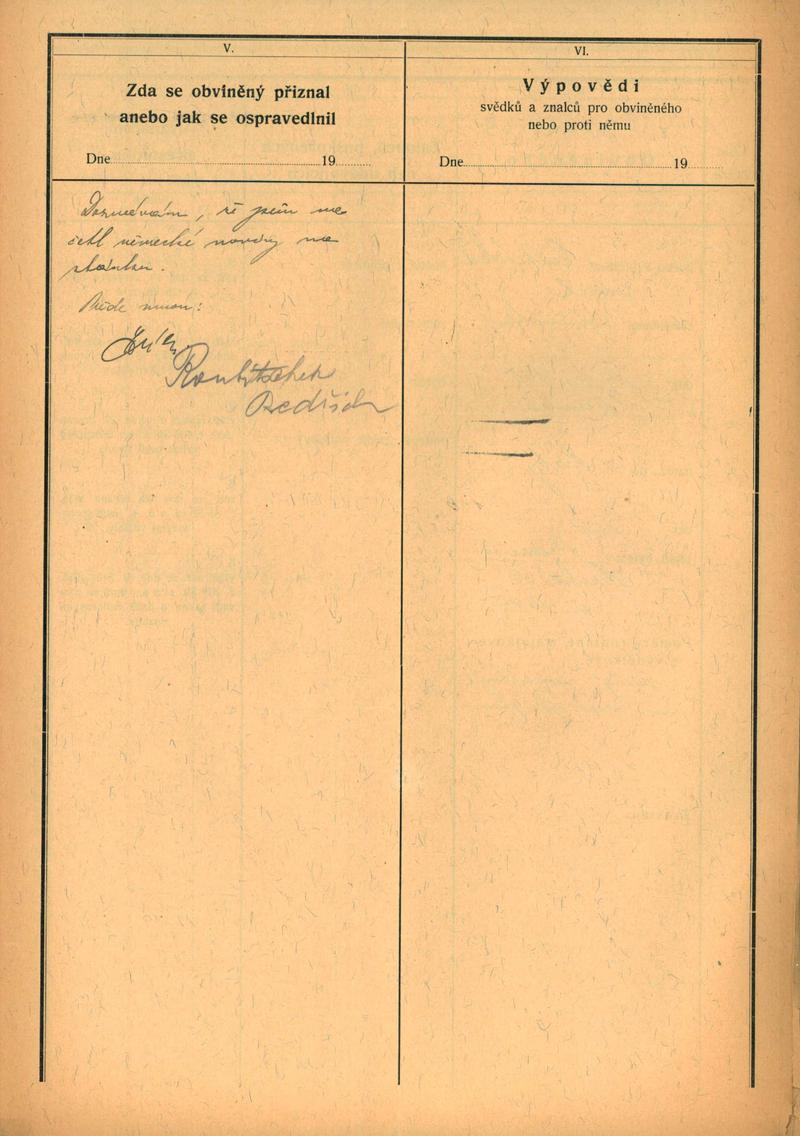 V.
Zda se obviněný přiznal
anebo jak se ospravedlnil
Dne 19
Doznávám, že jsem ne
četl německé noviny na
Přede mnou:
Roubitschek
Bedřich
VI.
Výpovědi
svědků a znalců pro obviněného
nebo proti němu
Dne 19